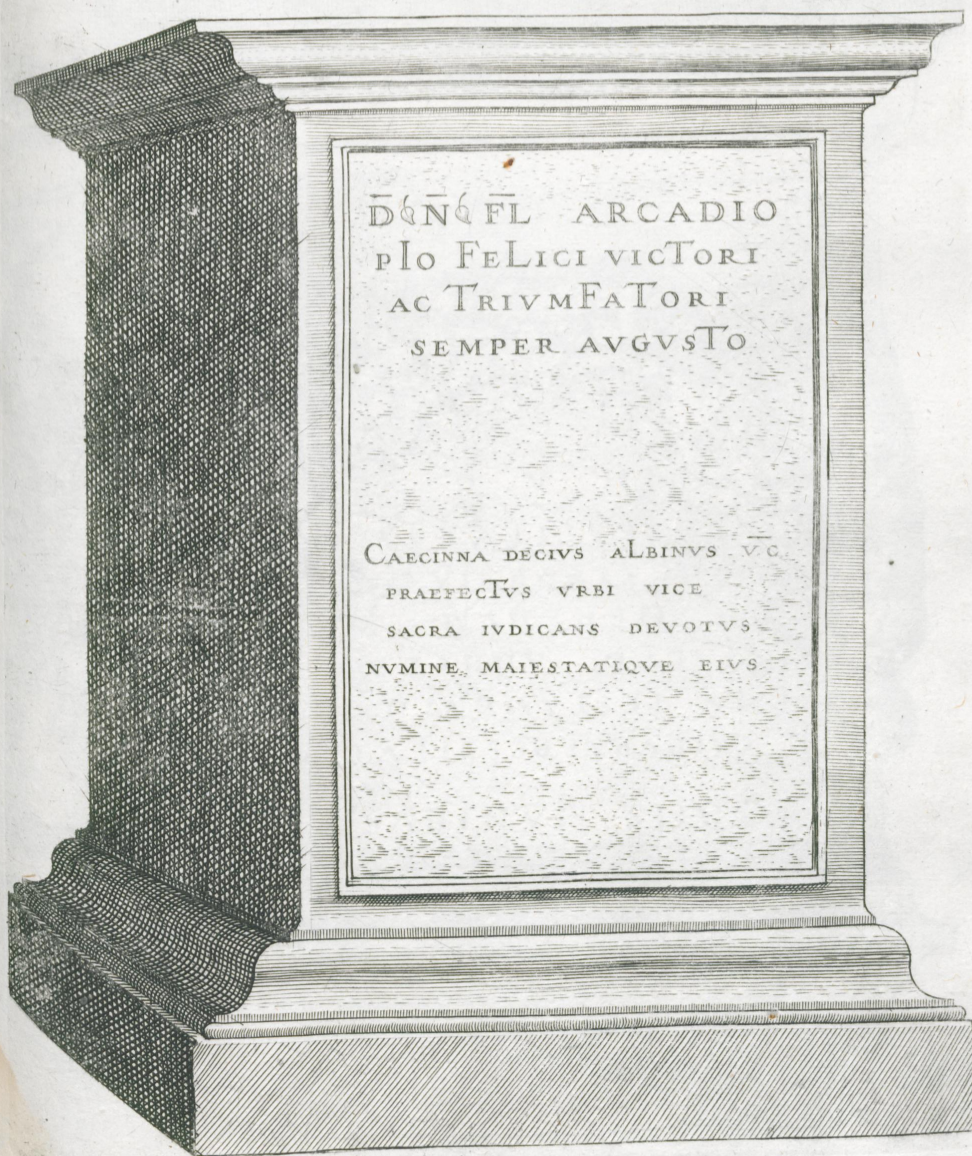 D̅ N̅ F̅L ARCADIO
PIO FELICI VICTORI
AC TRIVMFATORI
SEMPER AVGVSTO
CAECINNA DECIVS ALBINVS V̅.C.
PRAEFECTVS VRBI VICE
SACRA IVDICANS DEVOTVS
NVMINE MAIESTATIQVE EIVS